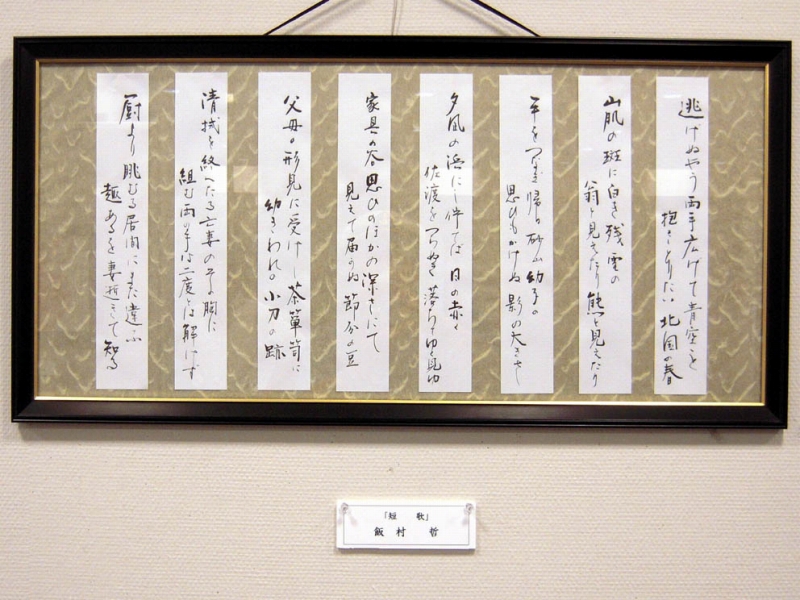 逃げぬやう両手広げて青空ごと
抱きとりたい北国の春
山肌の斑に白き残雪の
翁と見えたり熊と見えたり
手をつなぎ帰る砂山幼子の
思ひもかけぬ影の大きさ
夕凪の浜にし佇てば日の赤く
佐渡をつらぬき落ちてゆく見ゆ
家具の谷思ひのほかの深さにて
見えて届かぬ節分の豆
父母の形見に受けし茶箪笥に
幼きわれの小刀の跡
清拭を終へたる亡妻のその胸に
組む両の手は二度とは解けず
厨より眺むる居間にまた違ふ
趣あるを妻逝きて知る
「短 歌」
飯 村 哲